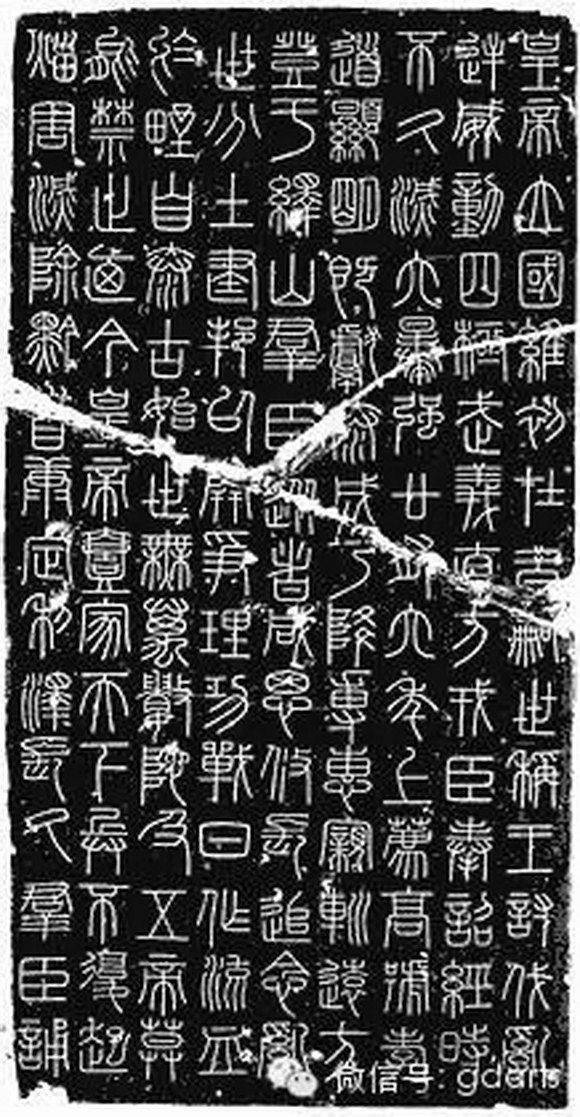 皇帝立國維初在昔嗣世稱王討伐亂
逆威動四極武義直方戎臣奉詔經時
不久滅六暴強廿有六年上薦高號孝
道顯明既獻泰成乃降專惠親巡遠方
登于繹山群臣從者咸思攸長追念亂
世分土建邦以開爭理功戰日作流血
於野自泰古始世無萬數陀及五帝莫
能禁止廼今皇帝壹家天下兵不復起
烖害滅除黔首康定利澤長久群臣誦
微信号: